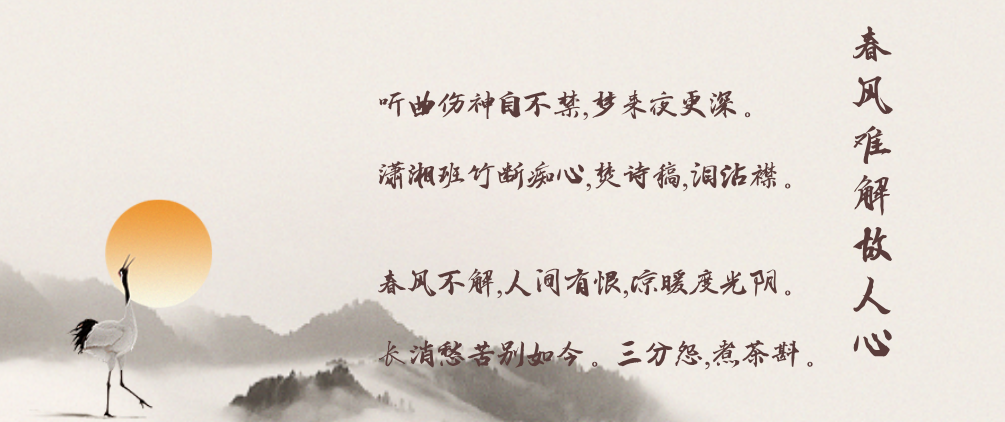 春风难解故人心
听曲伤神自不禁,梦来夜更深。
潇湘班竹断痴心,焚诗稿,泪沾襟。
春风不解,人间有恨,凉暖度光阴。
长消愁苦别如今。三分怨,煮茶斟。